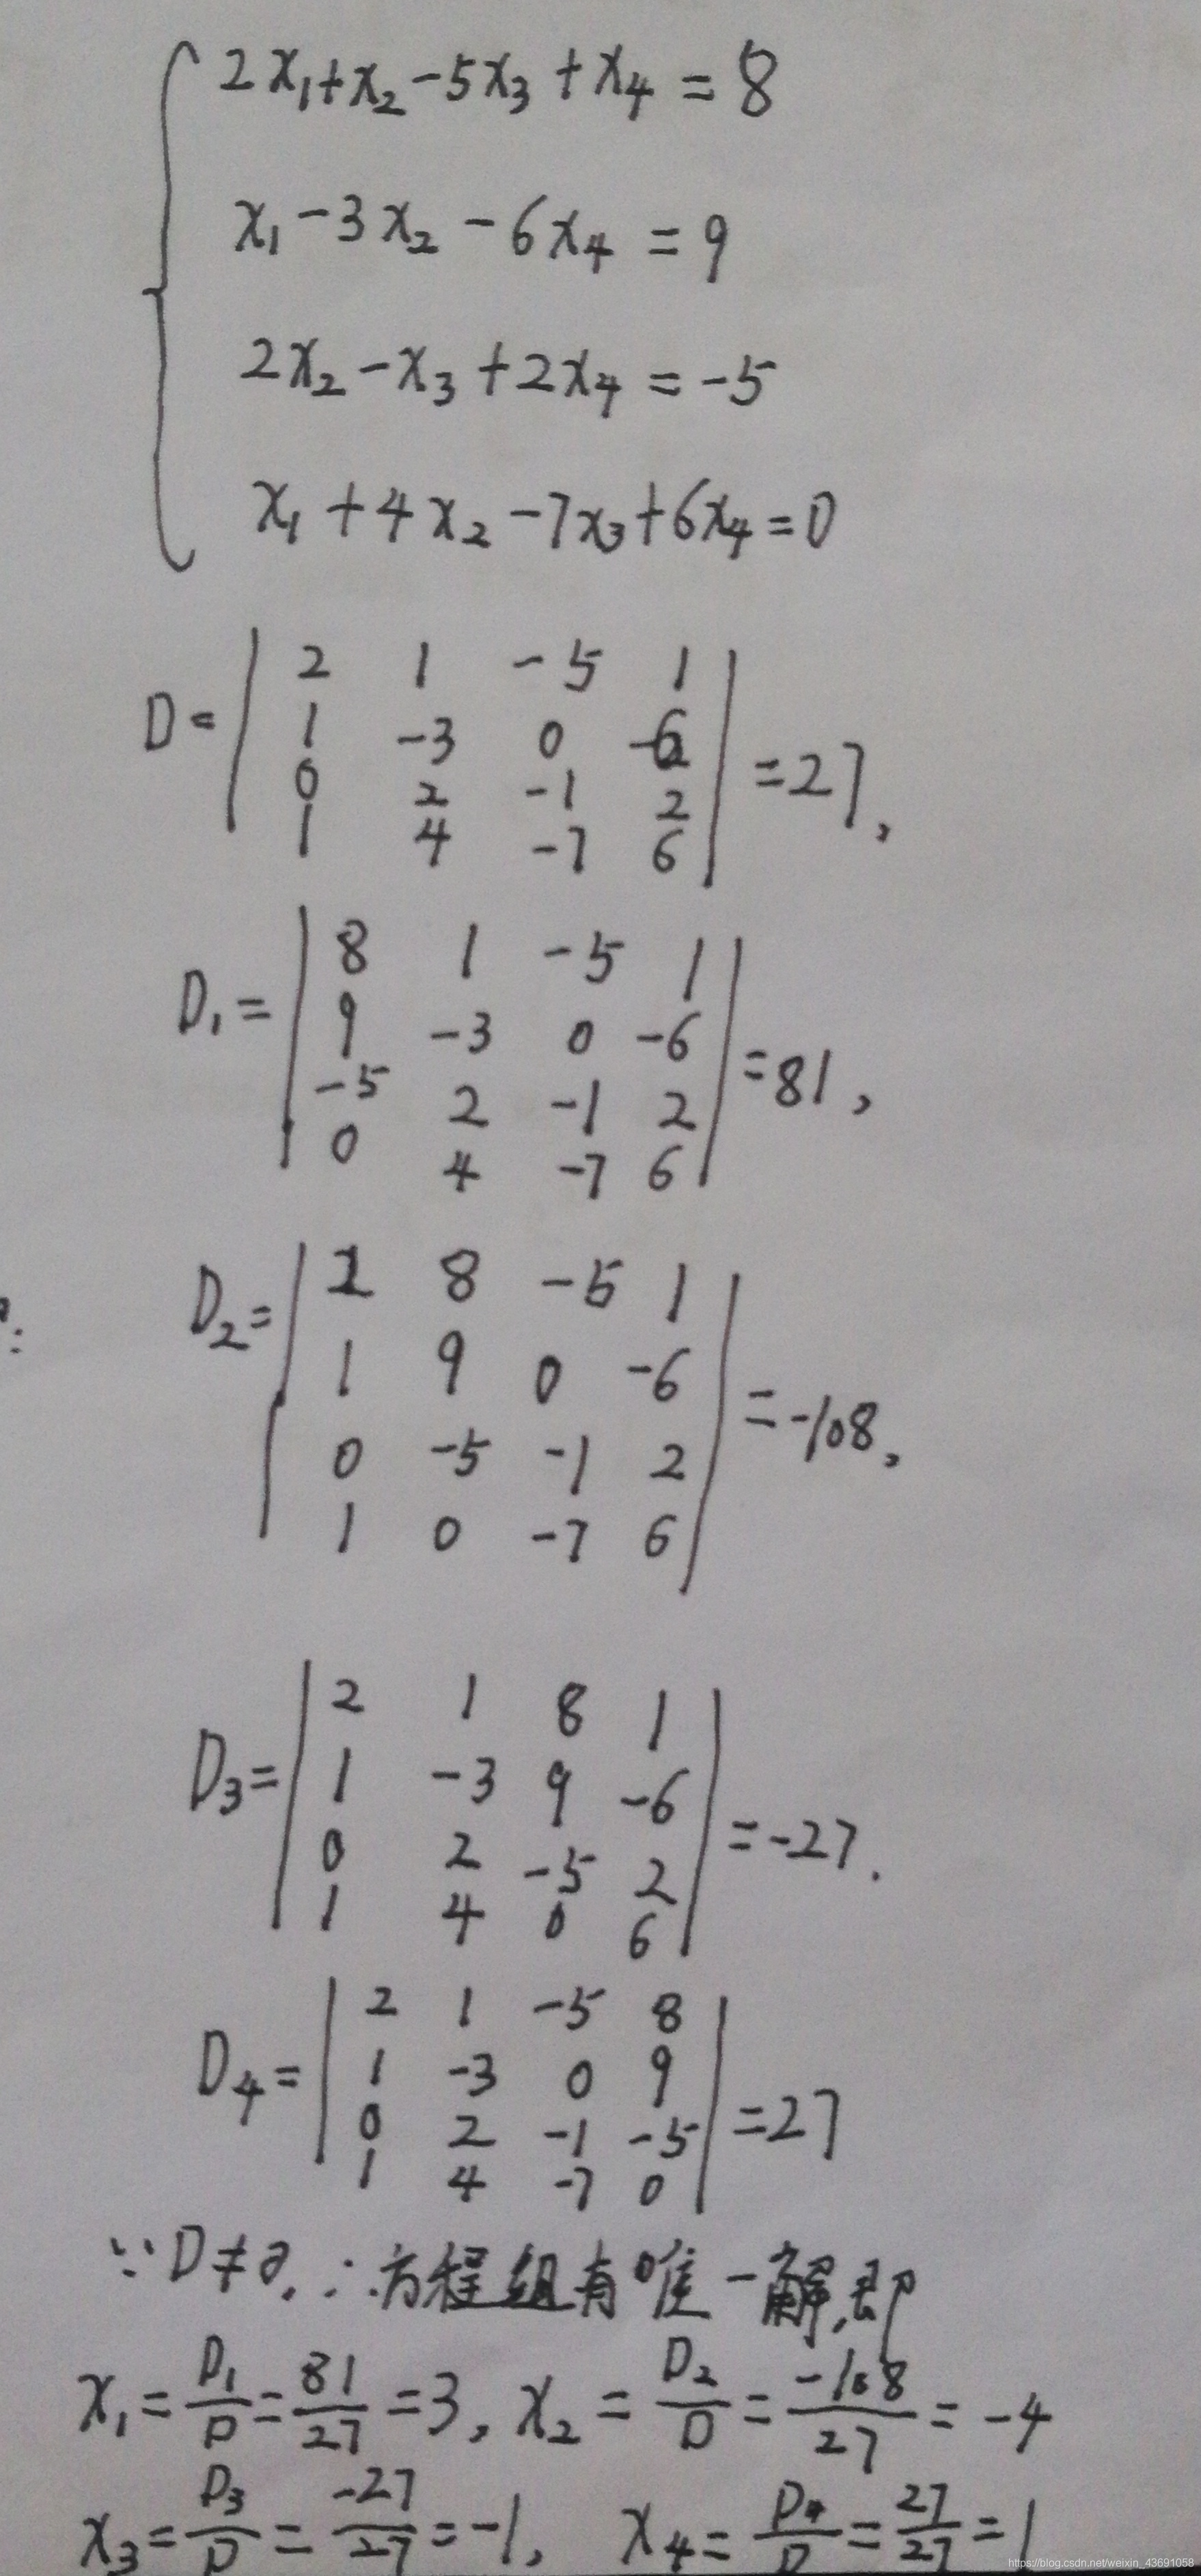 2x₁+x₂-5x₃+x₄=8
x₁-3x₂-6x₄=9
2x₂-x₃+2x₄=-5
x₁+4x₂-7x₃+6x₄=0
2 1 -5 1
D= 1 -3 0 -6 =27,
0 2 -1 2
1 4 -7 6
8 1 -5 1
D₁= 9 -3 0 -6 =81,
-5 2 -1 2
0 4 -7 6
2 8 -5 1
D₂= 1 9 0 -6 =-108,
0 -5 -1 2
1 0 -7 6
2 1 8 1
D₃= 1 -3 9 -6 =-27.
0 2 -5 2
1 4 0 6
2 1 -5 8
D₄= 1 -3 0 9 =27
0 2 -1 -5
1 4 -7 0
∵D≠0,∴方程组有唯一解,即
x₁=D₁/D=81/27=3, x₂=D₂/D=-108/27=-4
x₃=D₃/D=-27/27=-1, x₄=D₄/D=27/27=1
https://blog.csdn.net/weixin_43691058